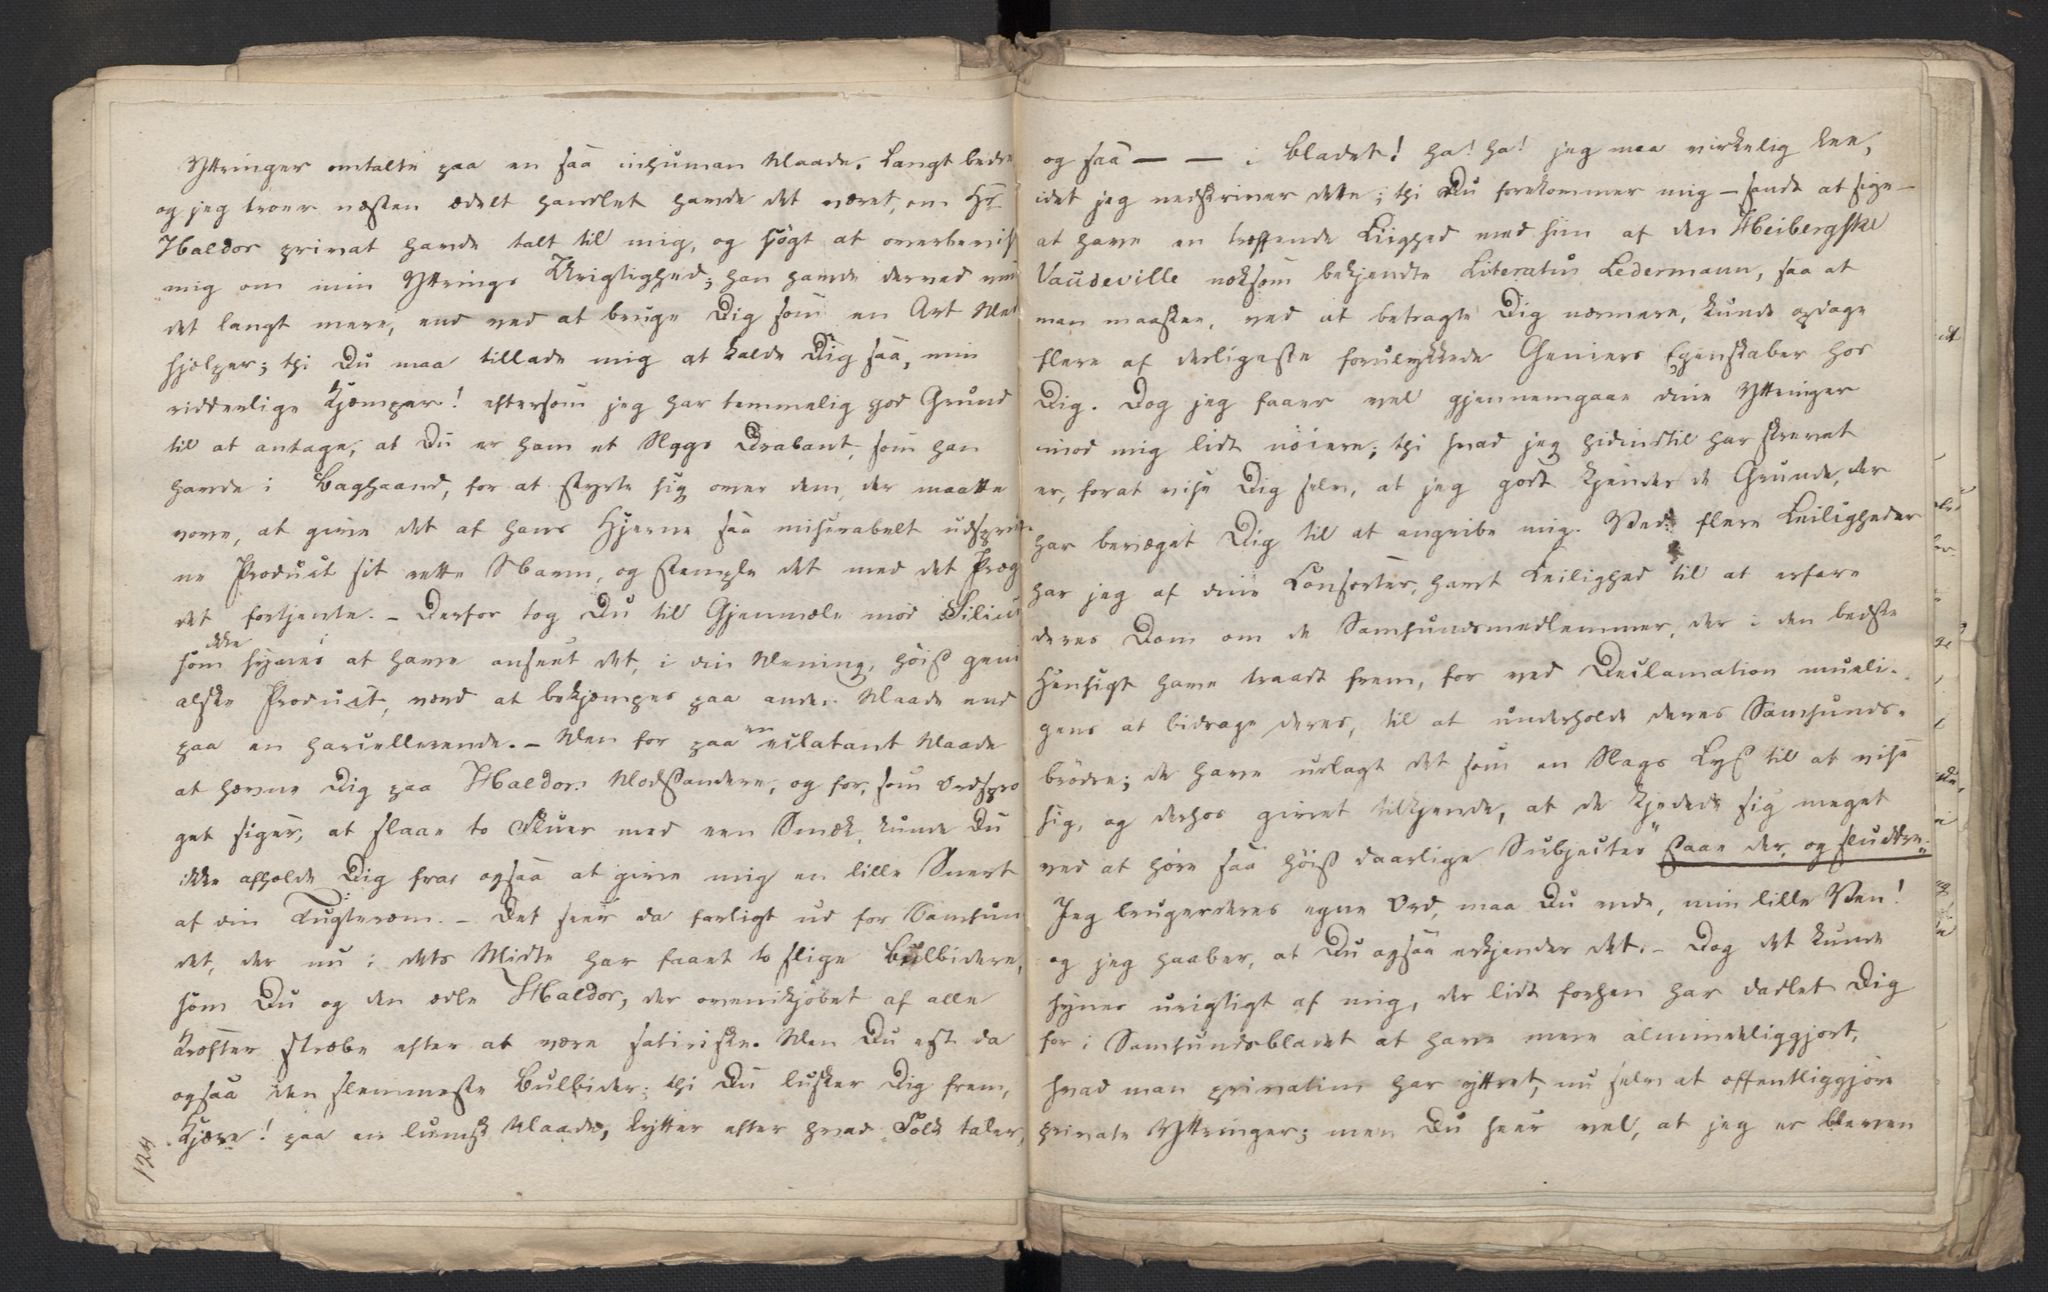 Yttringer omtalte paa en saa inhuman Maade. Langt bedre
og jeg troer næsten ædelt handlet havde det været, om Hr
Haldor privat havde talt til mig, og søgt at overbeviise
mig om min Yttrings Urigtighed; han havde derved
det langt mere, end ved at bruge Dig som en Art Med
hjelper; thi Du maa tillade mig at kalde Dig saa, min
ridderlige Kjæmper! eftersom jeg har temmelig god Grund
til at antage, at Du er ham et Slags Drabant, som han
havde i Baghaand, for at styrte sig over dem, der maatte
vove, at give det af hans Hjerne saa miserabelt udsprut
ne Product sit rette Navn, og stemple det med det Præg
det fortjente. – Derfor tog Du til Gjenmæle mod Silius
som ikke synes at have anseet det, i din Mening, høist geni
alske Product, værd at bekjæmpes paa anden Maade end
paa en harcellerende. – Men for paa en eclatant Maade
at hævne Dig paa Haldors Modstandere, og for, som Ordspro
get siger, at slaae to Fluer med een Smæk, kunde Du
ikke afholde Dig fra, ogsaa at give mig en lille Snert
af din Tugterem. – Det seer da farligt ud for Samfun
det, der nu i dets Midte har faaet to slige Bulbidere,
som Du og den ædle Haldor, der ovenikjøbet af alle
Kræfter stræbe efter at være satiriske. Men Du est da
ogsaa den slemmeste Bulbider; thi Du lusker Dig frem,
Kjære! paa en lumsk Maade, lytter efter hvad Folk taler,
124
og saa — — i Bladet! ha! ha! jeg maa virkelig lee,
idet jeg nedskriver dette; thi Du forekommer mig – sandt at sige –
at have en træffende Liighed med hiin af den Heibergske
Vaudeville noksom bekjendte Literatus Ledermann, saa at
man maaskee, ved at betragte Dig nærmere, kunde opdage
flere af desligeste forulykkede Geniers Egenskaber hos
Dig. Dog jeg faaer vel gjennemgaae dine Yttringer
mod mig lidt nöiere; thi hvad jeg hidindtil har skrevet
er, forat vise Dig selv, at jeg godt kjender de Grunde, der
har bevæget Dig til at angribe mig. Ved flere Leiligheder
har jeg af dine Consorter, havt Leilighed til at erfare
deres Dom om de Samfundsmedlemmer, der i den bedste
Hensigt have traadt frem, for ved Declamation mueli-
gens at bidrage deres, til at underholde deres Samfunds-
brödre; de have udlagt det som en Slags Lyst til at vise
sig, og derhos givet tilkjende, at de kjedede sig meget
ved at høre saa höist daarlige Subjecter "staae der, og sluddre".
Jeg bruger deres egne Ord, maa Du vide, min lille Ven!
og jeg haaber, at Du ogsaa erkjender det. – Dog det kunde
synes urigtigt af mig, der lidt forhen har dadlet Dig
for i Samfundsbladet at have mere almindeliggjort,
hvad man privatim har yttret, nu selv at offentliggjöre
private Yttringer; men Du seer vel, at jeg er bleven